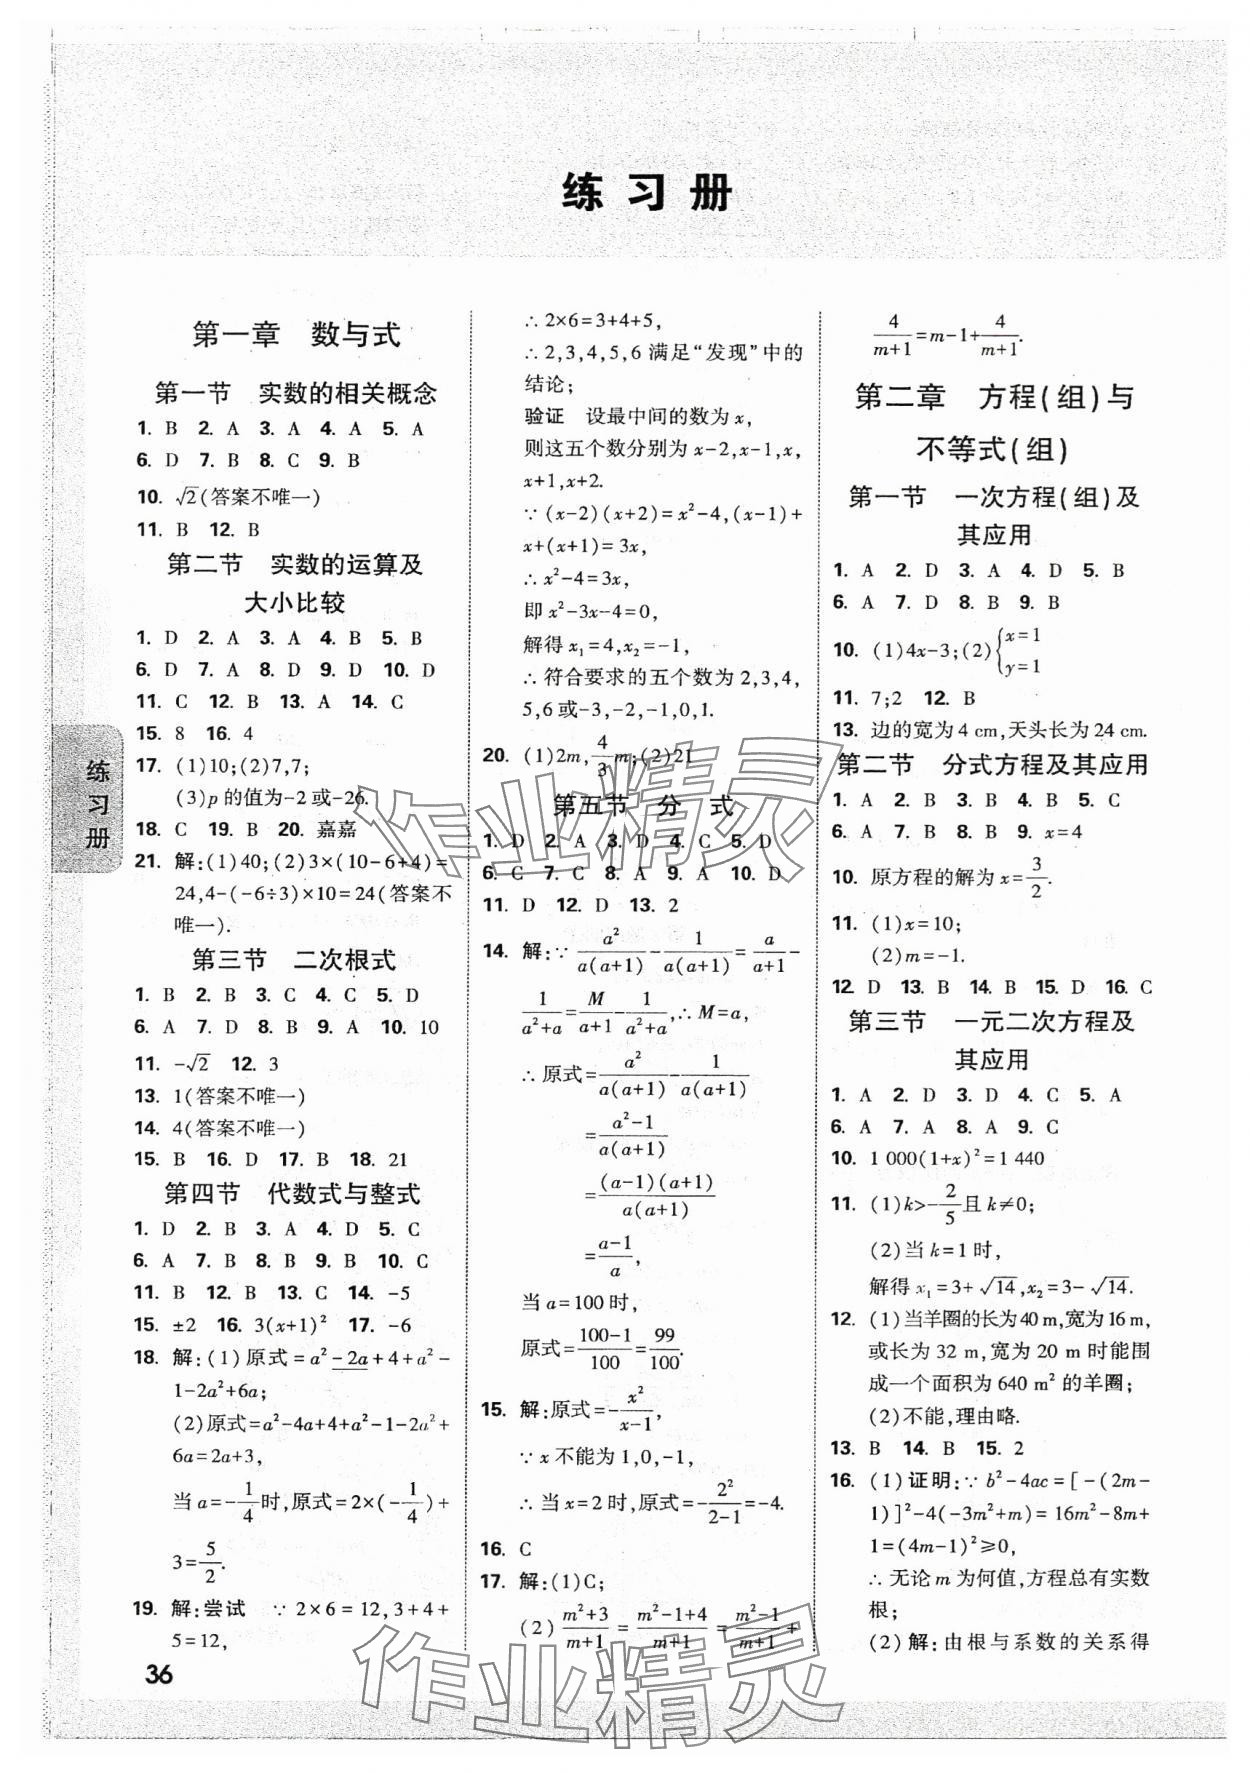 练习册
第一章 数与式
第一节 实数的相关概念
1. B 2. A 3. A 4. A 5. A
6. D 7. B 8. C 9. B
10. √2(答案不唯一)
11. B 12. B
第二节 实数的运算及
大小比较
1. D 2. A 3. A 4. B 5. B
6. D 7. A 8. D 9. D 10. D
11. C 12. B 13. A 14. C
15. 8 16. 4
17. (1)10;(2)7,7;
(3)p 的值为-2或-26.
18. C 19. B 20. 嘉嘉
21. 解:(1)40;(2)3×(10-6+4)=
24,4-(-6÷3)×10=24(答案不
唯一).
第三节 二次根式
1. B 2. B 3. C 4. C 5. D
6. A 7. D 8. B 9. A 10. 10
11. -√2 12. 3
13. 1(答案不唯一)
14. 4(答案不唯一)
15. B 16. D 17. B 18. 21
第四节 代数式与整式
1. D 2. B 3. A 4. D 5. C
6. A 7. B 8. B 9. B 10. C
11. B 12. B 13. C 14. -5
15. ±2 16. 3(x+1)² 17. -6
18. 解:(1)原式=a²-2a+4+a²-
1-2a²+6a;
(2)原式=a²-4a+4+a²-1-2a²+
6a=2a+3,
当a=-1/4时,原式=2×(-1/4)+
3=5/2.
19. 解:尝试 ∵2×6=12,3+4+
5=12,
36
练习册
∴2×6=3+4+5,
∴2,3,4,5,6满足“发现”中的
结论;
验证 设最中间的数为x,
则这五个数分别为x-2,x-1,x,
x+1,x+2.
∵(x-2)(x+2)=x²-4,(x-1)+
x+(x+1)=3x,
∴x²-4=3x,
即x²-3x-4=0,
解得x₁=4,x₂=-1,
∴符合要求的五个数为2,3,4,
5,6或-3,-2,-1,0,1.
20. (1)2m,4/3m;(2)21
第五节 分 式
1. D 2. A 3. D 4. C 5. D
6. C 7. C 8. A 9. A 10. D
11. D 12. D 13. 2
14. 解:∵a²/a(a+1)-1/a(a+1)=a/a+1-
1/a²+a=M/a+1-1/a²+a,∴M=a,
∴原式=a²/a(a+1)-1/a(a+1)
=a²-1/a(a+1)
=(a-1)(a+1)/a(a+1)
=a-1/a,
当a=100时,
原式=100-1/100=99/100.
15. 解:原式=-x²/x-1,
∵x不能为1,0,-1,
∴当x=2时,原式=-2²/2-1=-4.
16. C
17. 解:(1)C;
(2)m²+3/m+1=m²-1+4/m+1=m²-1/m+1+
4/m+1=m-1+4/m+1.
第二章 方程(组)与
不等式(组)
第一节 一次方程(组)及
其应用
1. A 2. D 3. A 4. D 5. B
6. A 7. D 8. B 9. B
10. (1)4x-3;(2){x=1
y=1
11. 7;2 12. B
13. 边的宽为4 cm,天头长为24 cm.
第二节 分式方程及其应用
1. A 2. B 3. B 4. B 5. C
6. A 7. B 8. B 9. x=4
10. 原方程的解为x=3/2.
11. (1)x=10;
(2)m=-1.
12. D 13. B 14. B 15. D 16. C
第三节 一元二次方程及
其应用
1. A 2. D 3. D 4. C 5. A
6. A 7. A 8. A 9. C
10. 1 000(1+x)²=1 440
11. (1)k>-2/5且k≠0;
(2)当k=1时,
解得x₁=3+√14,x₂=3-√14.
12. (1)当羊圈的长为40 m,宽为16 m,
或长为32 m,宽为20 m时能围
成一个面积为640 m²的羊圈;
(2)不能,理由略.
13. B 14. B 15. 2
16. (1)证明:∵b²-4ac=[-(2m-
1)]²-4(-3m²+m)=16m²-8m+
1=(4m-1)²≥0,
∴无论m为何值,方程总有实数
根;
(2)解:由根与系数的关系得
作业精灵
作业精灵